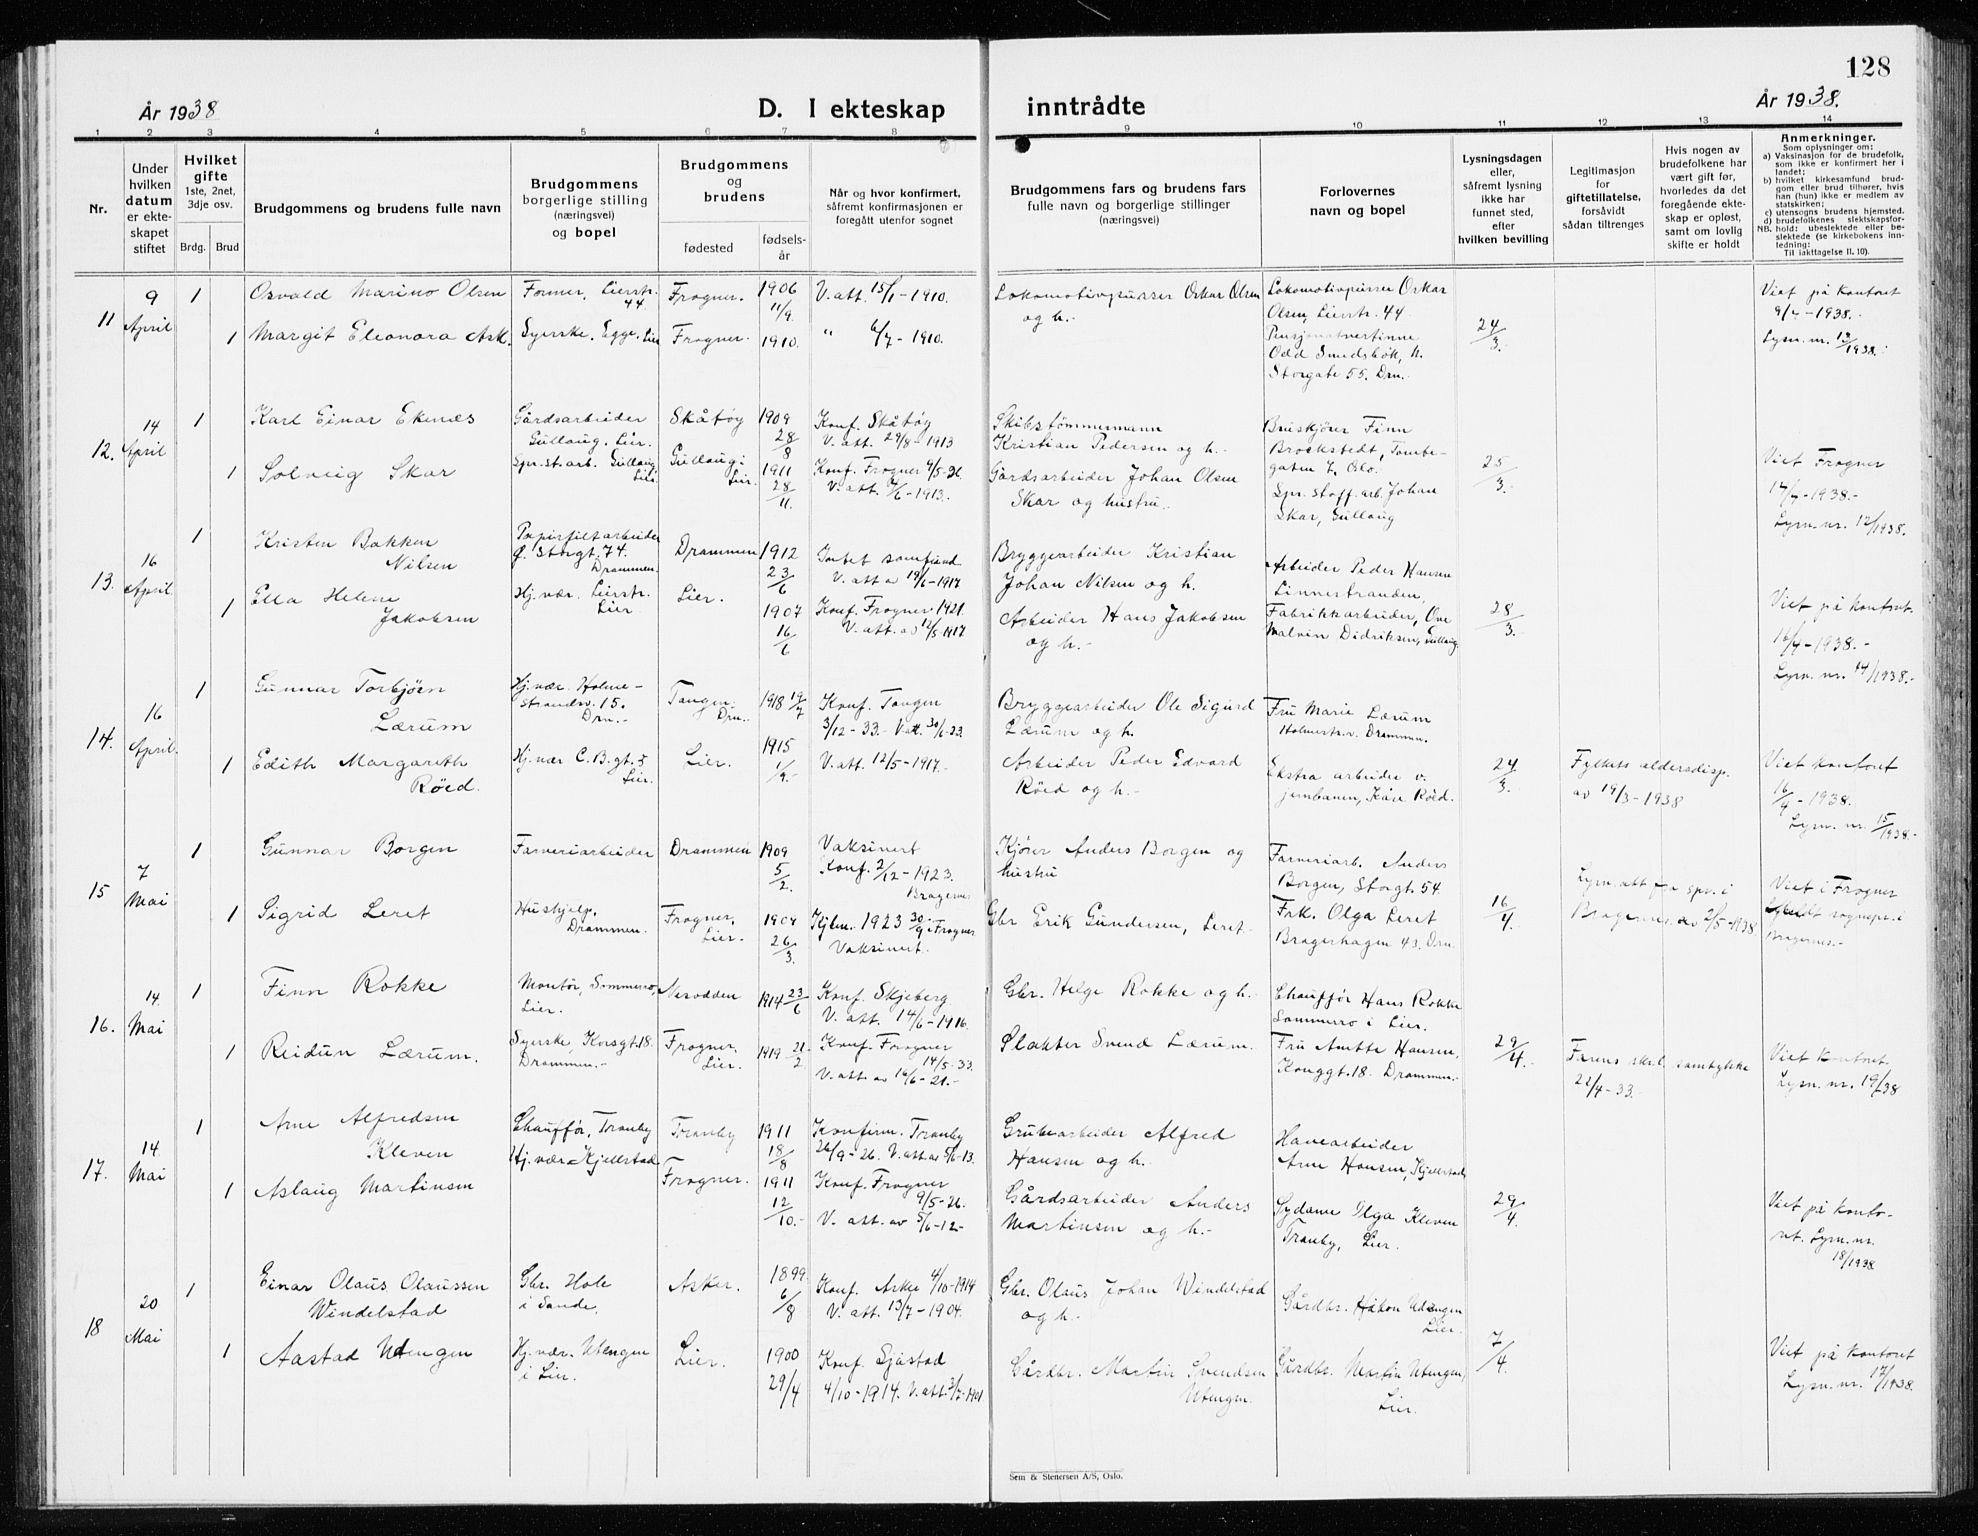 128
År 1938
D. I ekteskap inntrådte
År 1938.
1 2 3 4 5 6 7 8 9 10 11 12 13 14
Nr.
Under
hvilken
datum
er ekte-
skapet
stiftet
Hvilket
gifte
1ste, 2net,
3dje osv.
Brdg. Brud
Brudgommens og brudens fulle navn
Brudgommens
borgerlige stilling
(næringsvei)
og bopel
Brudgommens
og
brudens
fødested
fødsels-
år
Når og hvor konfirmert,
såfremt konfirmasjonen er
foregått utenfor sognet
Brudgommens fars og brudens fars
fulle navn og borgerlige stillinger
(næringsvei)
Forlovernes
navn og bopel
Lysningsdagen
eller,
såfremt lysning
ikke har
funnet sted,
efter
hvilken bevilling
Legitimasjon
for
giftetillatelse,
forsåvidt
sådan tiltrenges
Hvis nogen av
brudefolkene har
vært gift før,
hvorledes da det
foregående ekte-
skap er opløst,
samt om lovlig
skifte er holdt
Anmerkninger.
Som oplysninger om:
a) Vaksinasjon for de brudefolk,
som ikke er konfirmert her i
landet;
b) hvilket kirkesamfund brud-
gom eller brud tilhører, hvis
han (hun) ikke er medlem av
statskirken;
c) utensogns brudens hjemsted.
d) brudefolkenes slektskapsfor-
hold: ubeslektede eller be-
slektede (se kirkebokens inn-
ledning:
NB.
Til iakttagelse II. 10).
11
9
April
1
Osvald Marino Olsen
Former, Lierstr.
44.
Frogner.
1906
11/9.
V. att. 15/1-1910.
Lokomotivpusser Oskar Olsen
og h.-
Lokomotivpusser Oskar
Olsen, Lierstr. 44
1
Margit Eleonora Ask.
Syerske, Egge, Lier
Frogner.
1910.
" 6/7-1910.
Odd Smedsbök, h.
Storgate 55. Drn.
24/3.
Viet på kontoret
9/4-1938.
Lysn. nr. 13/1938.
12.
14
April
1
Karl Einar Ekenes
Gårdsarbeider
Gullaug, Lier.
Skåtøy
1909
28/8
Konf. Skåtøy
V. att. 29/8-1913
Skibstømmermann
Kristian Pedersen og h.-
Finn
Oslo.
1
Solveig Skar
Spr.st.arb. Gullaug
Lier
Gullaug i
Lier.
1911
28/11.
Konf. Frogner 9/5-26.
V. att. 4/6-1913.
Gårdsarbeider Johan Olsen
Skar og hustru.
Spr. stoff. arb. Johan
Skar, Gullaug
25/3.
Viet Frogner
14/4-1938.-
Lysn. nr. 12/1938.
13.
16
April
1
Kristen Bakken
Nilsen
Papirfiltarbeider
Ø. Storgt. 74.
Drammen.
Drammen
1912
23/6
Intet samfund
V. att av 19/6-1917
Bryggearbeider Kristian
Johan Nilsen og h.
Arbeider Peder Hansen
Linnestranden,
1
Ella Helene
Jakobsen
Hj. vær. Lierstr.
Lier
Lier.
1907
16/6
Konf. Frogner 1921.
V. att. av 12/5-1917
Arbeider Hans Jakobsen
og h.-
Fabrikkarbeider, Ove
Malvin Didriksen, Gullaug
28/3.
Viet på kontoret.
16/4-1938.-
Lysn. nr. 14/1938.-
14.
16
April.
1
Gunnar Torbjørn
Lærum
Hj. vær. Holme-
strandsv. 15.
Drn.-
Tangen.
Drn.
1918 19/7
Konf. Tangen
3/12-33.- V. att. 30/6-23.
Bryggearbeider Ole Sigurd
Lærum og h.
Fru Marie Lærum
Holmestr.v. Drammen.
1
Edith Margareth
Röed.
Hj. vær C. B. gt. 5
Lier.
Lier.
1915
1/9.-
V. att. 12/5-1917.-
Arbeider Peder Edvard
Röed og h.-
Ekstra arbeider v.
jernbanen, Kåre Röed.
24/3.
Fylkets aldersdisp.
av 19/3-1938
Viet kontoret
16/4-1938.
Lysn. nr. 15/1938.-
15
7
Mai
1
Gunnar Borgen
Farveriarbeider
Drammen
1909
5/2.
Vaksinert
Konf. 2/12-1923.
Bragernes
Kjører Anders Borgen og
hustru
Farveriarb. Anders
Borgen, Storgt. 54.
1
Sigrid Leret
Hushjelp,
Drammen.
Frogner,
Lier.
1904
26/3.
1923 30/9 i Frogner
Vaksinert.
Gbr Erik Gundersen, Leret.
Frk. Olga Leret
Bragerhagen 43. Drn.
16/4.
Lysn. att fra spr. i
Bragernes av 2/5-1938
Viet i Frogner
sognepr. i
Bragernes.-
16.
14.
Mai
1
Finn Rokke
Montør, Sommerro,
Lier.
Notodden
1914 23/6
Konf. Skjeberg.
V. att. 14/6-1916.
Gbr. Helge Rokke og h.
Chauffør Hans Rokke
Sommerro i Lier.
1
Reidun Lærum.
Syerske, Korsgt. 18.
Drammen.-
Frogner,
Lier.
1919 21/2.
Konf. Frogner
14/5-33.
V. att. av 16/6-21.-
Slakter Svend Lærum.
Fru Anette Hansen,
Konggt. 18. Drammen.-
29/4.
Farens skr.l. samtykke
22/4-33.
Viet kontoret.
Lysn. nr. 19/38
17.
14.
Mai
1
Arne Alfredsen
Kleven
Chauffør, Tranby
Tranby
1911
18/8
Konfirm. Tranby
26/9-26. V. att. av 5/6-13.
Grubearbeider Alfred
Hansen og h.
Havearbeider
Arne Hansen, Kjellstad
1
Aslaug Martinsen
Hj. vær Kjellstad
Frogner.
1911
12/10.-
Konf. Frogner
9/5-26.
V. att. av 5/6-12-
Gårdsarbeider Anders
Martinsen og h.-
Sydame Olga Kleven
Tranby, Lier.
29/4.
Viet på konto-
ret. Lysn. nr.
18/1938
18
20
Mai
1
Einar Olaus Olaussen
Windelstad
Gbr. Hole
i Sande.
Asker.
1899
6/8
Konf. Asker 4/10-1914
V. att. 13/7-1904.
Gbr. Olaus Johan Windelstad
og h.
Gårdbr. Håkon Utengen
Lier.
1
Aastad Utengen
Hj. vær. Utengen
i Lier.
Lier.
1900
29/4
Konf. Sjåstad
4/10-1914. V. att. 3/7-1901
Gårdbr. Martin Svendsen
Utengen.
Gårdbr. Martin Utengen,
Lier.
7/4.
Viet på kontoret
Lysn. nr. 17/1938.
Sem & Stenersen A/S, Oslo.